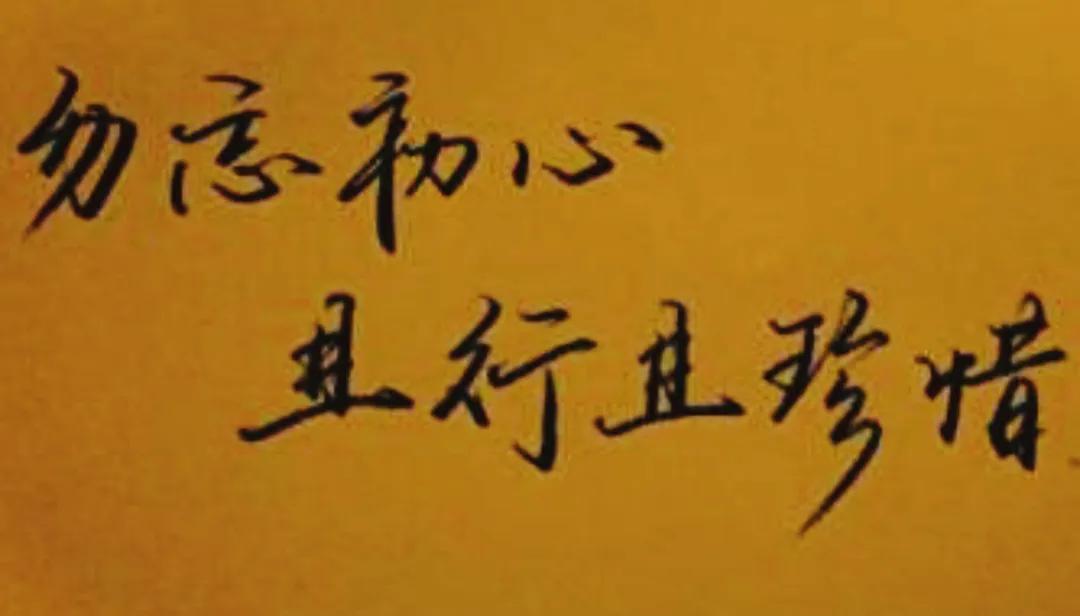 勿忘初心
且行且珍惜